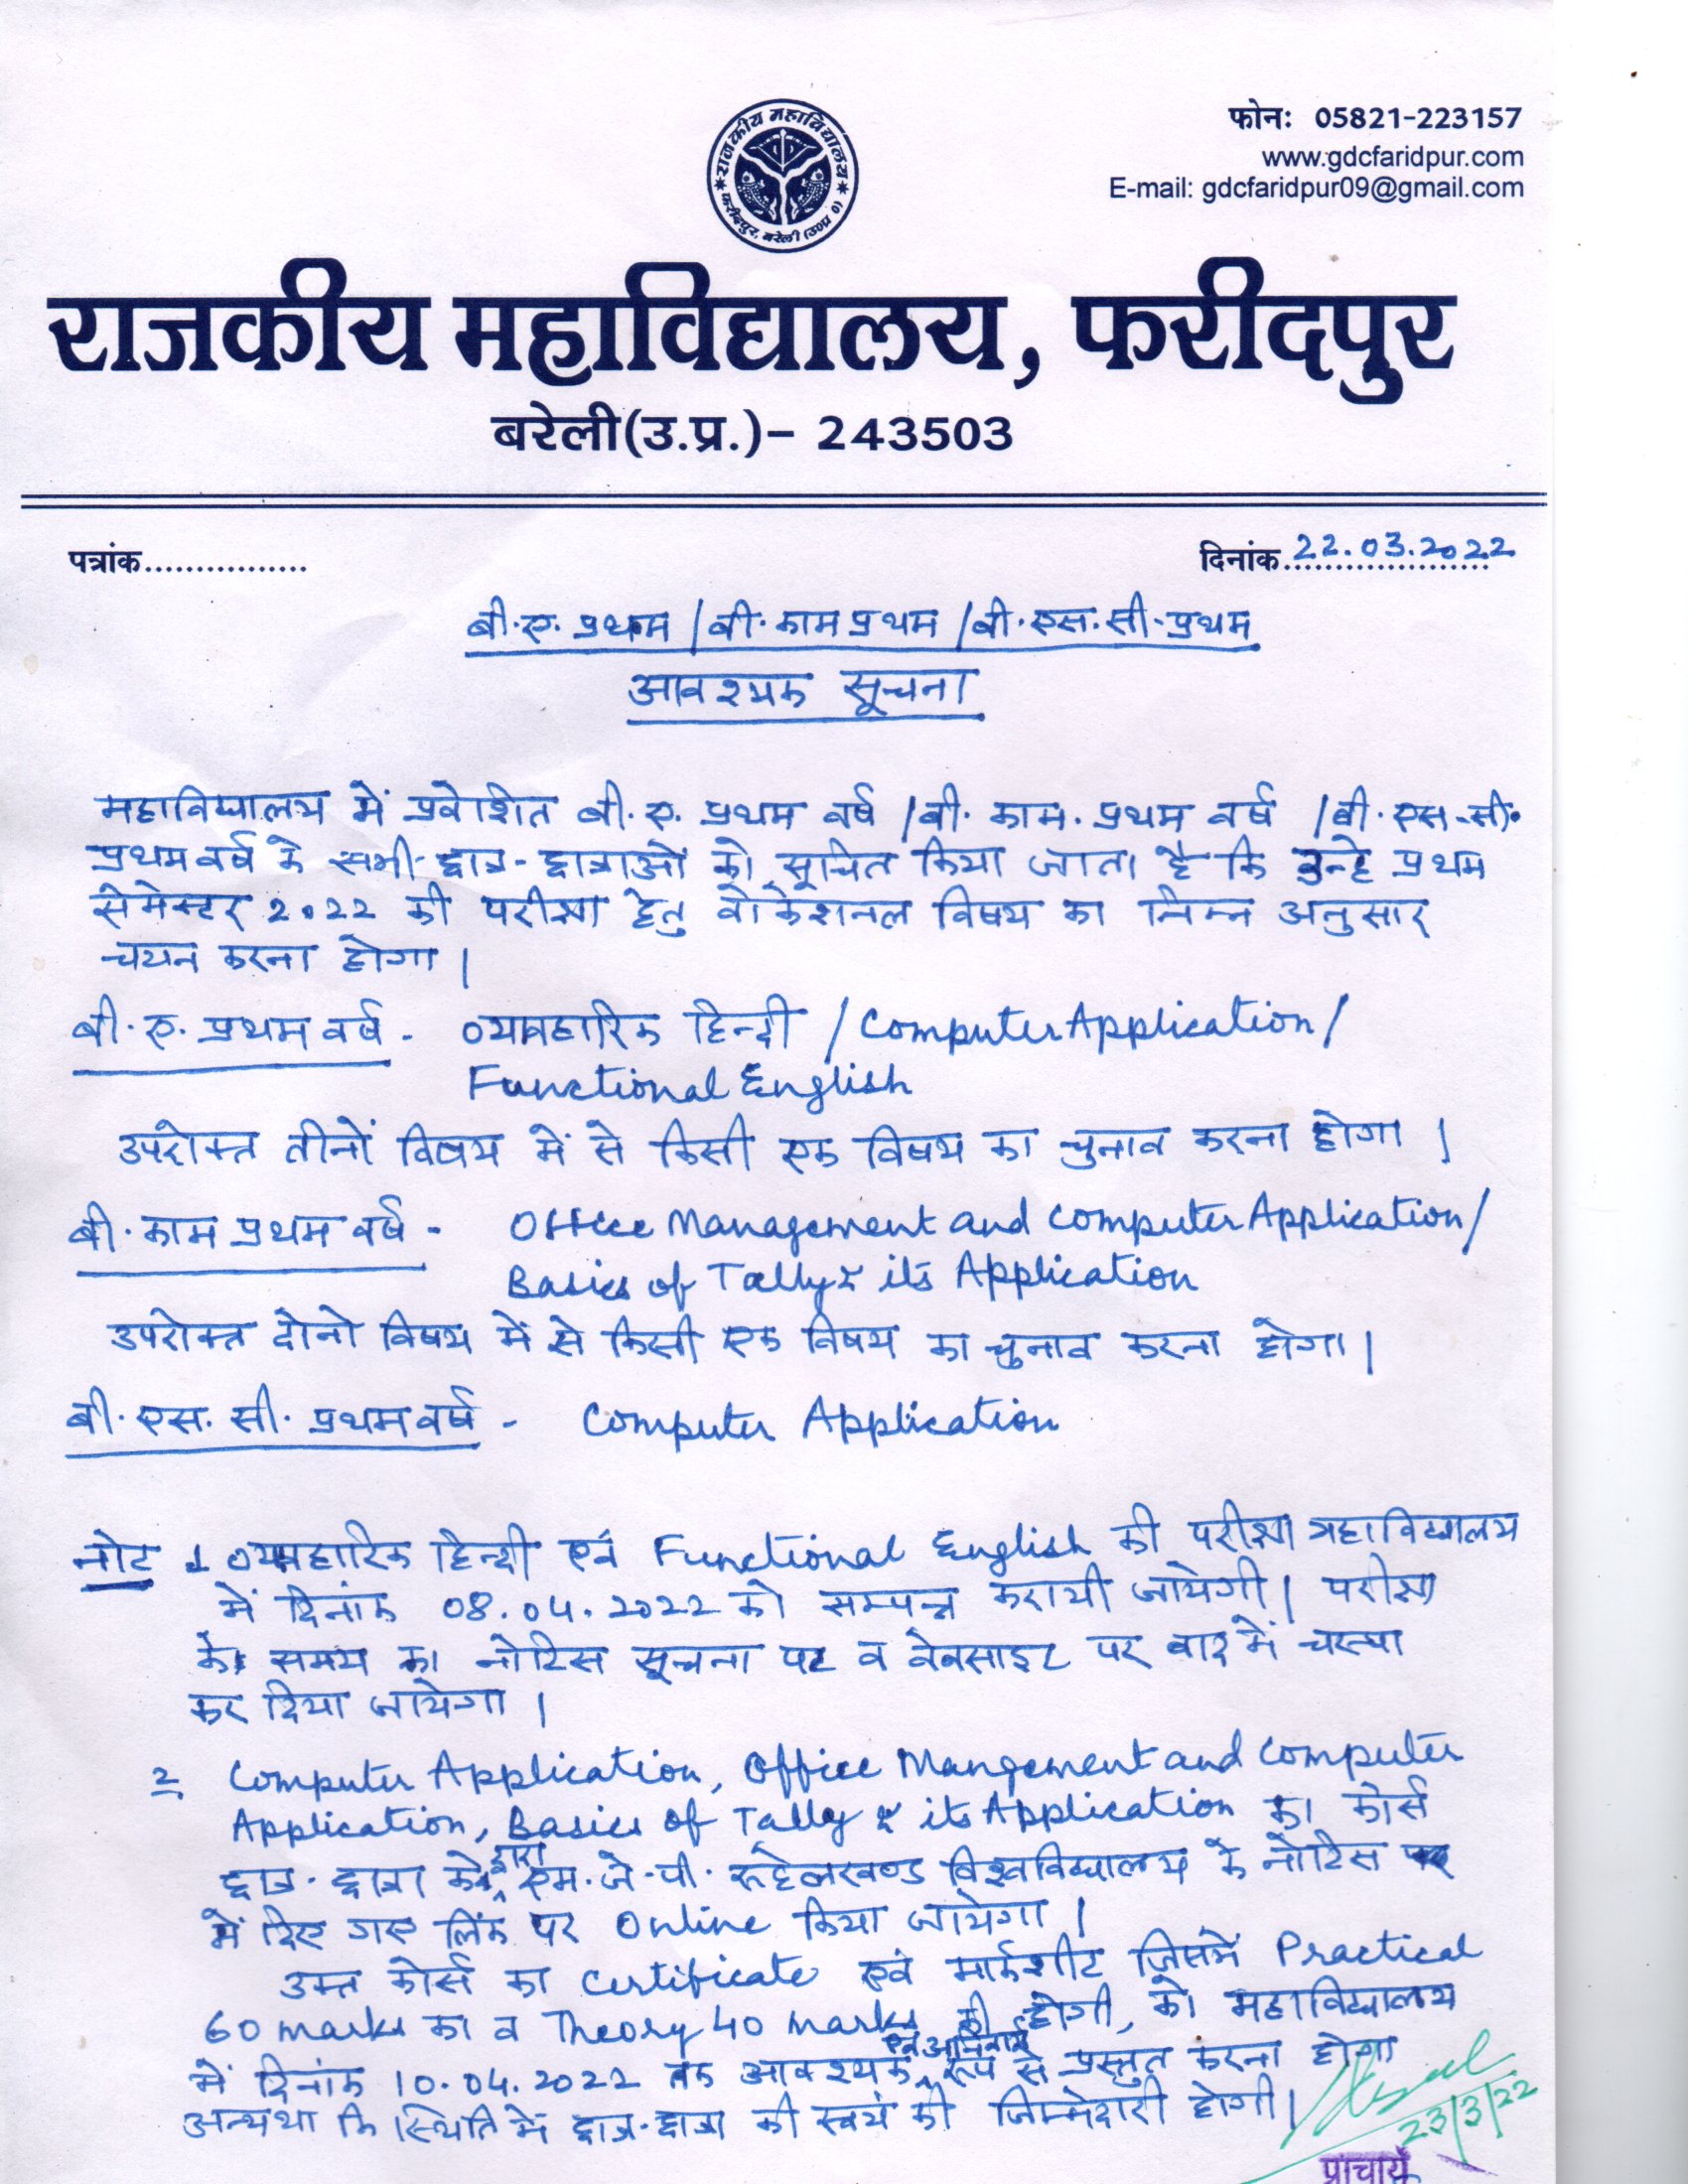 राजकीय महाविद्यालय
फरीदपुर, बरेली (उ०प्र०)
फोनः 05821-223157
www.gdcfaridpur.com
E-mail: gdcfaridpur09@gmail.com
राजकीय महाविद्यालय, फरीदपुर
बरेली(उ.प्र.)– 243503
पत्रांक................
दिनांक 22.03.2022
बी.ए. प्रथम / बी. काम प्रथम / बी.एस.सी. प्रथम
आवश्यक सूचना
महाविद्यालय में प्रवेशित बी.ए. प्रथम वर्ष / बी. काम. प्रथम वर्ष / बी.एस.सी.
प्रथम वर्ष के सभी छात्र-छात्राओं को सूचित किया जाता है कि उन्हे प्रथम
सेमेस्टर 2022 की परीक्षा हेतु वोकेशनल विषय का निम्न अनुसार
चयन करना होगा।
बी.ए. प्रथम वर्ष - व्यावहारिक हिन्दी / Computer Application /
Functional English
उपरोक्त तीनों विषय में से किसी एक विषय का चुनाव करना होगा।
बी. काम प्रथम वर्ष - Office Management and Computer Application /
Basics of Tally & its Application
उपरोक्त दोनो विषय में से किसी एक विषय का चुनाव करना होगा।
बी.एस.सी. प्रथम वर्ष - Computer Application
नोट 1 व्यावहारिक हिन्दी एवं Functional English की परीक्षा महाविद्यालय
में दिनांक 08.04.2022 को सम्पन्न करायी जायेगी। परीक्षा
के समय का नोटिस सूचना पट व वेबसाइट पर बाद में चस्पा
कर दिया जायेगा।
2 Computer Application, Office Mangement and Computer
Application, Basics of Tally & its Application का कोर्स
छात्र-छात्रा के द्वारा एम.जे.पी. रुहेलखण्ड विश्वविद्यालय के नोटिस
में दिए गए लिंक पर Online किया जायेगा।
उक्त कोर्स का Certificate एवं मार्कशीट जिसमें Practical
60 marks का व Theory 40 marks की होगी, को महाविद्यालय
में दिनांक 10.04.2022 तक आवश्यक एवं अनिवार्य रूप से प्रस्तुत करना होगा
अन्यथा कि स्थिति में छात्र-छात्रा की स्वयं की जिम्मेदारी होगी।
23/3/22
प्राचार्य